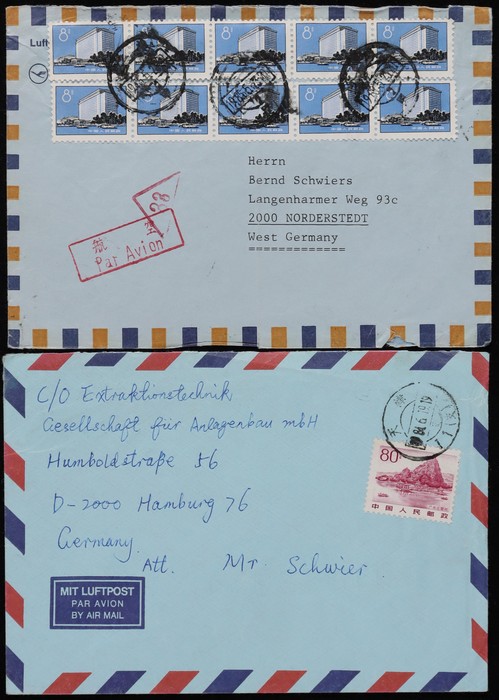 Luft
8分 8分 8分 8分 8分
8分 8分 8分 8分 8分
Herrn
Bernd Schwiers
Langenharmer Weg 93c
2000 NORDERSTEDT
West Germany
航空
Par Avion
C/O Extraktionstechnik
Gesellschaft für Anlagenbau mbH
Humboldstraße 56
D-2000 Hamburg 76
Germany
Att. Mr. Schwier.
80分
中国人民邮政
MIT LUFTPOST
PAR AVION
BY AIR MAIL